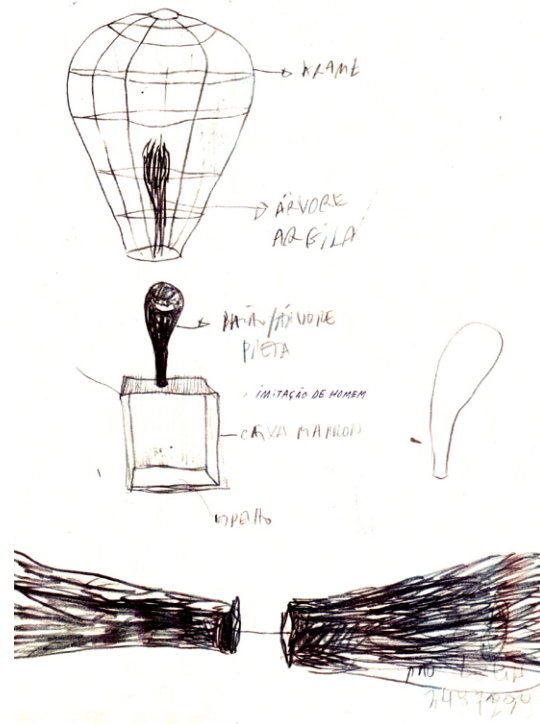 ARAME
ÁRVORE
ARGILA
/ÁRVORE
PRETA
IMITAÇÃO DE HOMEM
CAIXA MARROM
ESPELHO